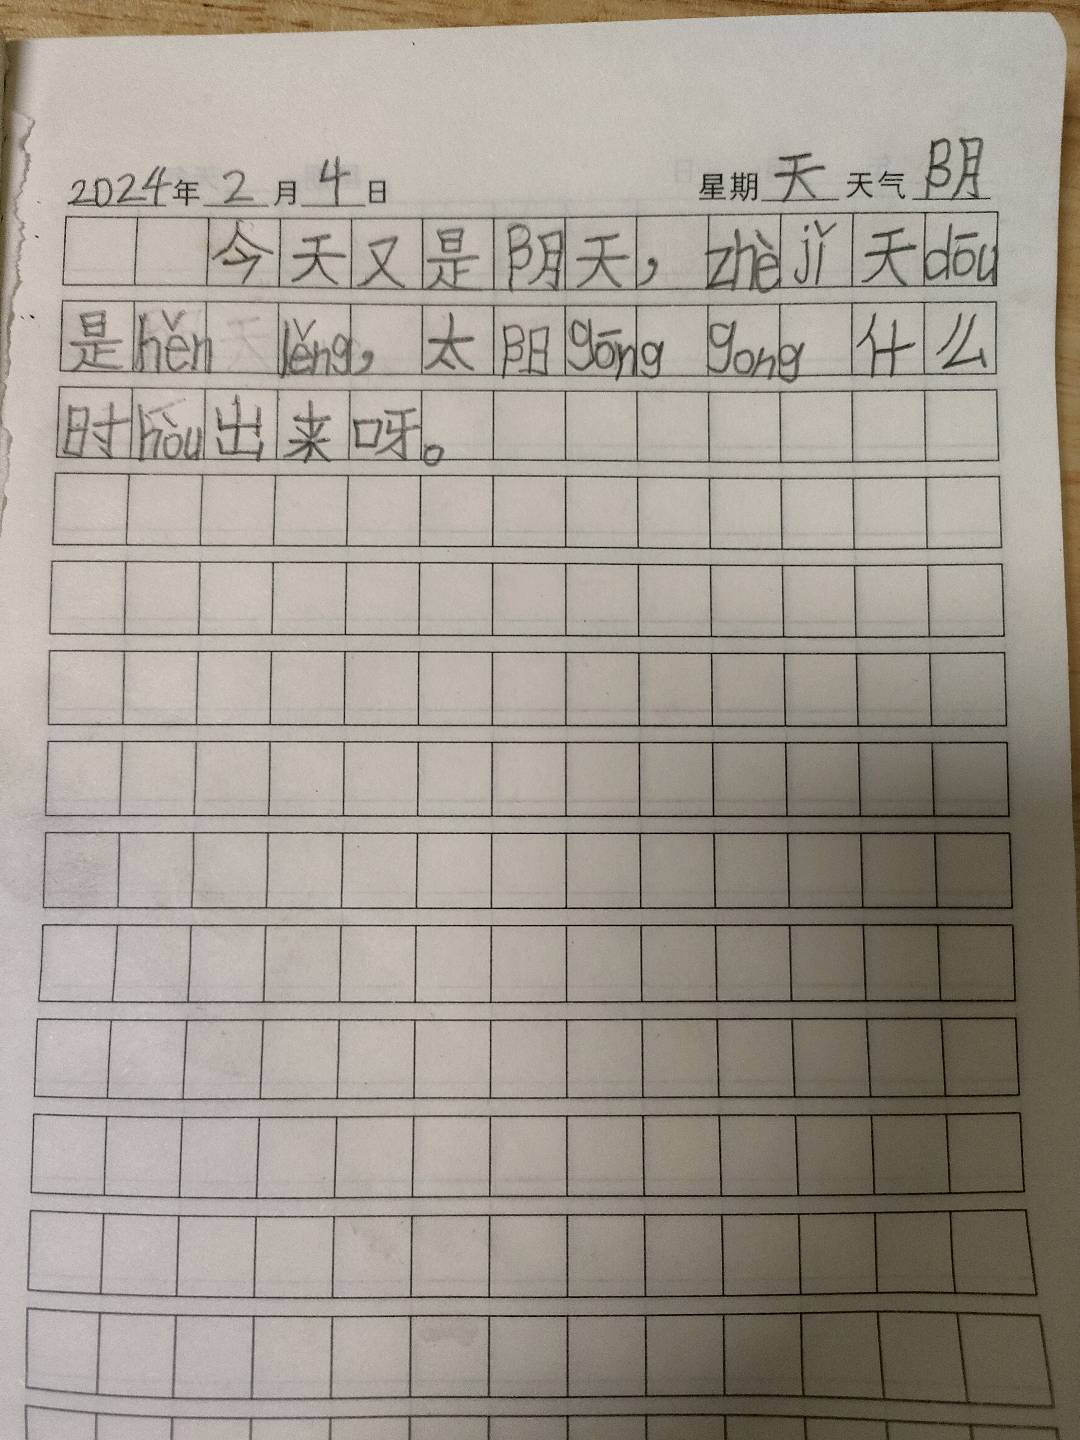 2024年2月4日 星期天 天气阴
今天又是阴天，zhè jǐ 天 dōu
是 hěn lěng，太阳 gōng gong 什么
时 hòu 出来呀。